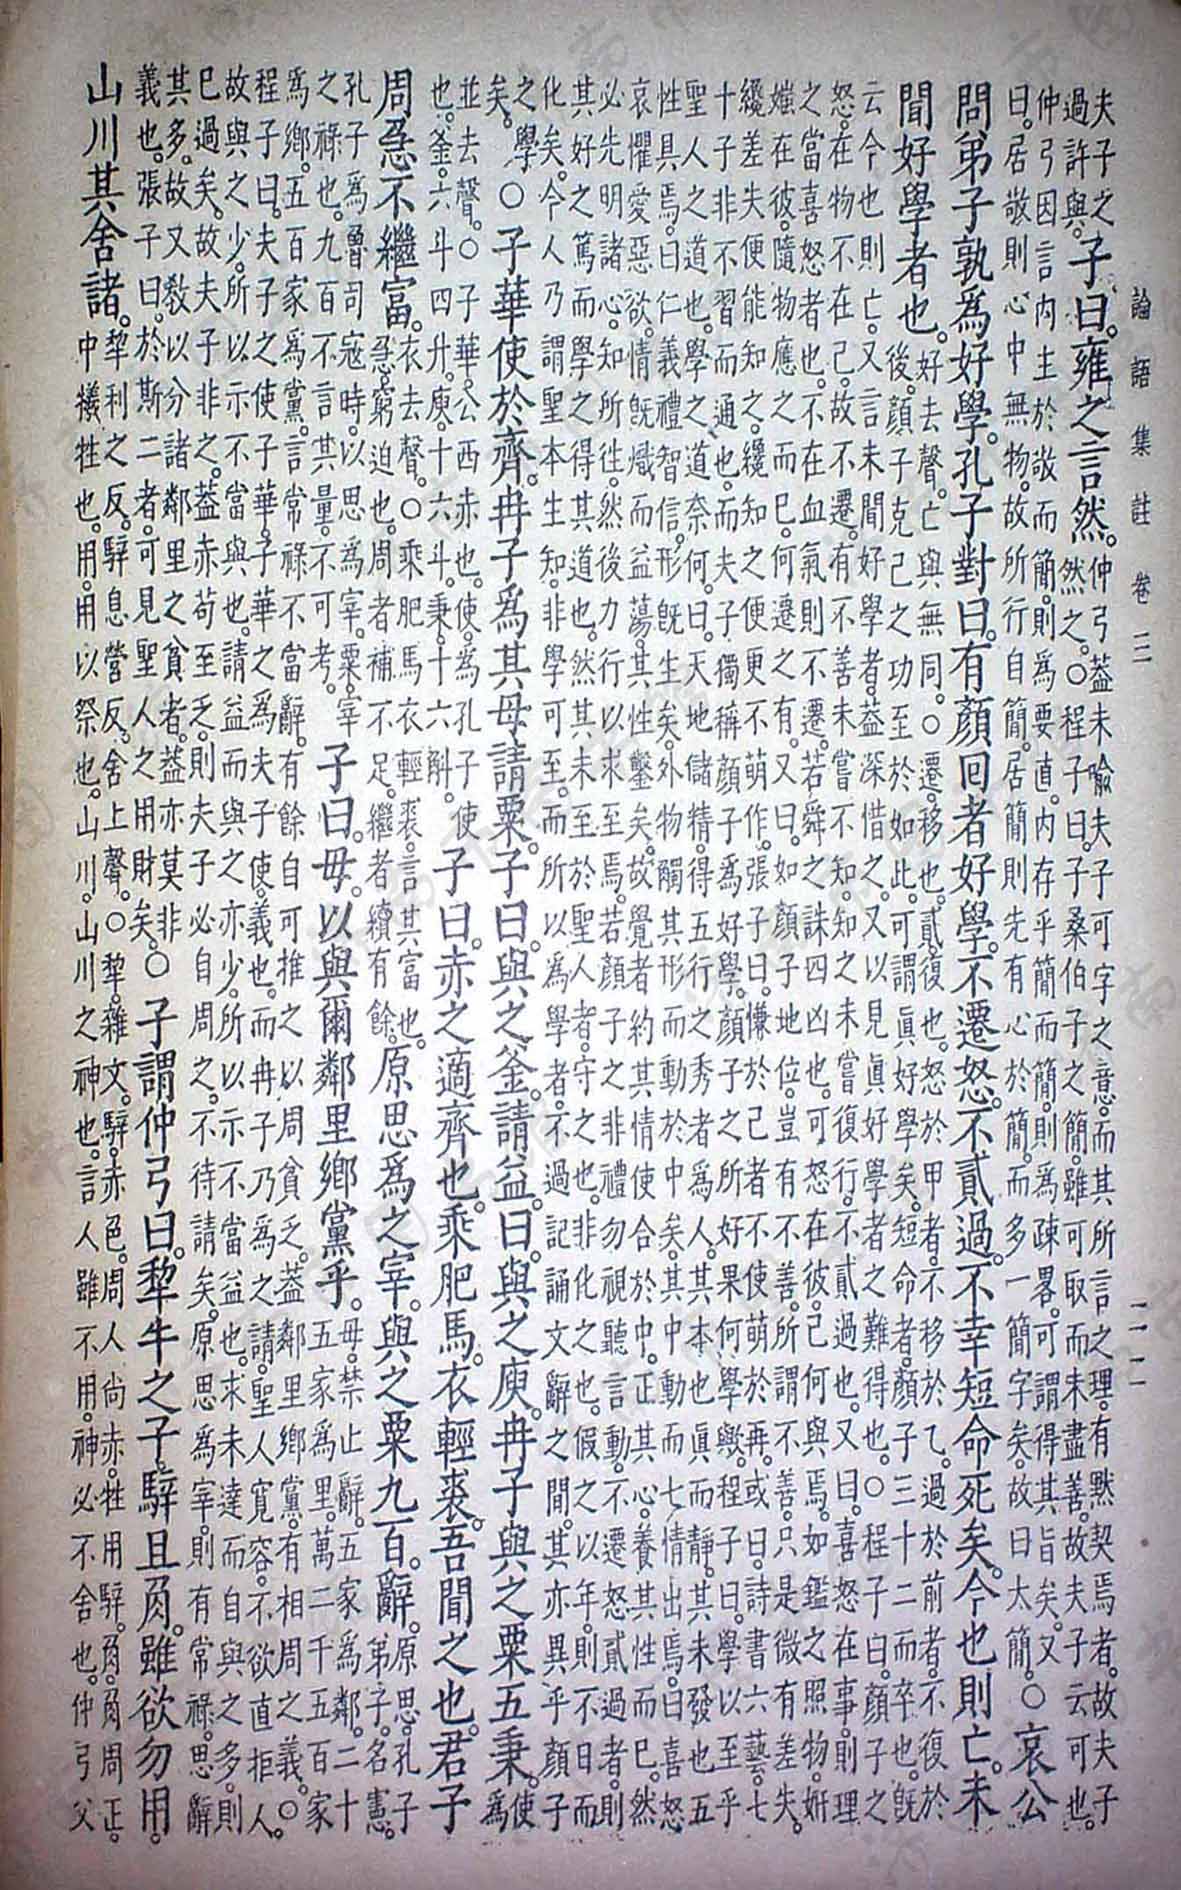 夫子之
過許與。
子曰。雍之言然。
仲弓蓋未喻夫子可字之意。而其所言之理。有默契焉者。故夫子
然之。○程子曰。子桑伯子之簡。雖可取而未盡善。故夫子云可也。
仲弓因言內主於敬而簡。則為要直。內存乎簡而簡。則為疎畧。可謂得其旨矣。又
曰。居敬則心中無物。故所行自簡。居簡則先有心於簡。而多一簡字矣。故曰太簡。○
哀公
問弟子孰為好學。孔子對曰。有顏回者好學。不遷怒。不貳過。不幸短命死矣。今也則亡。未
聞好學者也。
好去聲。亡與無同。○遷。移也。貳。復也。怒於甲者。不移於乙。過於前者。不復於
後。顏子克己之功至於如此。可謂眞好學矣。短命者。顏子三十二而卒也。既
云今也則亡。又言未聞好學者。蓋深惜之。又以見眞好學者之難得也。○程子曰。顏子之
怒。在物不在己。故不遷。有不善未嘗不知。知之未嘗復行。不貳過也。又曰。喜怒在事。則理
之當喜怒者也。不在血氣則不遷。若舜之誅四凶也。可怒在彼。己何與焉。如鑑之照物。妍
媸在彼。隨物應之而已。何遷之有。又曰。如顏子地位。豈有不善。所謂不善。只是微有差失。
纔差失便能知之。纔知之便更不萌作。張子曰。慊於己者。不使萌於再。或曰。詩書六藝。七
十子非不習而通也。而夫子獨稱顏子為好學。顏子之所好。果何學歟。程子曰。學以至乎
聖人之道也。學之道奈何。曰。天地儲精。得五行之秀者為人。其本也眞而靜。其未發也五
性具焉。曰仁義禮智信。形既生矣。外物觸其形而動於中矣。其中動而七情出焉。曰喜怒
哀懼愛惡欲。情既熾而益蕩。其性鑿矣。故覺者約其情使合於中。正其心。養其性而已。然
必先明諸心。知所往。然後力行以求至焉。若顏子之非禮勿視聽言動。不遷怒貳過者。則
其好之篤而學之得其道也。然其未至於聖人者。守之也。非化之也。假之以年。則不日而
化矣。今人乃謂聖本生知。非學可至。而所以為學者。不過記誦文辭之間。其亦異乎顏子
之學
矣。
○子華使於齊。冉子為其母請粟。子曰。與之釜。請益。曰。與之庾。冉子與之粟五秉。
使
為
並去聲。○子華。公西赤也。使。為孔子使
也。釜。六斗四升。庾。十六斗。秉。十六斛。
子曰。赤之適齊也。乘肥馬。衣輕裘。吾聞之也。君子
周急不繼富。
衣去聲。○乘肥馬衣輕裘。言其富也。
急。窮迫也。周者補不足。繼者續有餘。
原思為之宰。與之粟九百。辭。
原思。孔子
弟子。名憲。
孔子為魯司寇時。以思為宰。粟。宰
之祿也。九百不言其量。不可考。
子曰。毋。以與爾鄰里鄉黨乎。
毋。禁止辭。五家為鄰。二十
五家為里。萬二千五百家
為鄉。五百家為黨。言常祿不當辭。有餘自可推之以周貧乏。蓋鄰里鄉黨。有相周之義。○
程子曰。夫子之使子華。子華之為夫子使。義也。而冉子乃為之請。聖人寬容。不欲直拒人。
故與之少。所以示不當與也。請益而與之亦少。所以示不當益也。求未達而自與之多。則
已過矣。故夫子非之。蓋赤苟至乏。則夫子必自周之。不待請矣。原思為宰。則有常祿。思辭
其多。故又敎以分諸鄰里之貧者。蓋亦莫非
義也。張子曰。於斯二者。可見聖人之用財矣。
○子謂仲弓曰。犂牛之子。騂且角。雖欲勿用。
山川其舍諸。
犂利之反。騂息營反。舍上聲。○犂。雜文。騂。赤色。周人尚赤。牲用騂。角。角周正。
中犧牲也。用。用以祭也。山川。山川之神也。言人雖不用。神必不舍也。仲弓父
論語集註 卷三
二二